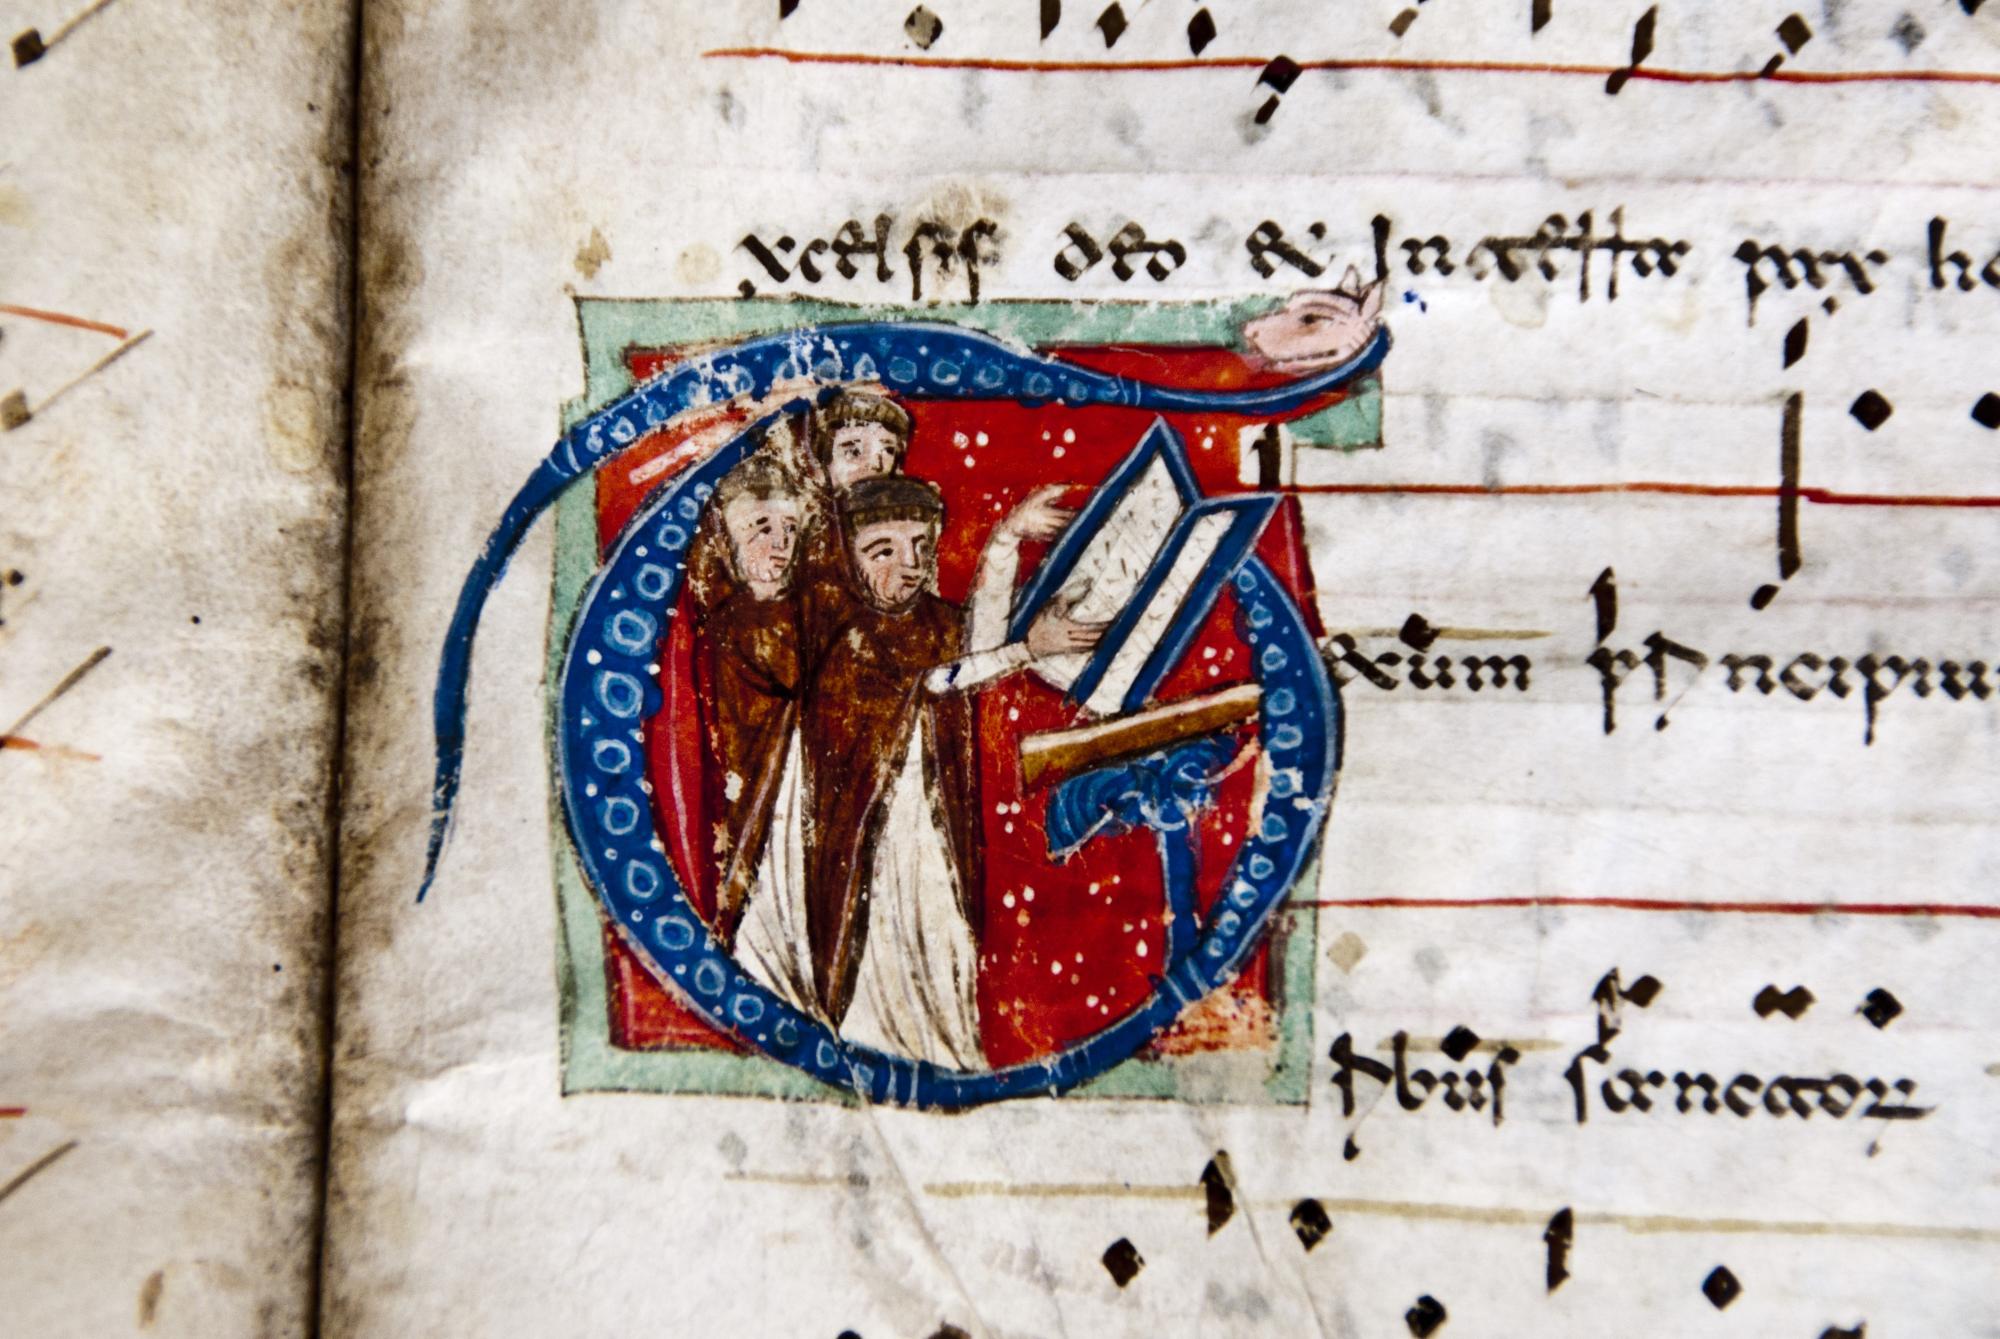 xcelsis deo & In terra pax ho
Tecum principiu
ribus sanctoꝝ